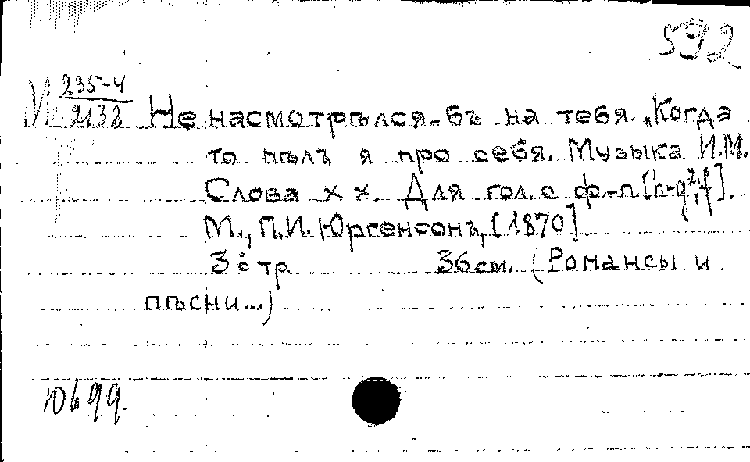 592
235-4
2132
Не насмотрѣлся-бъ на тебя. „Когда
то пѣлъ я про себя. Музыка И.М.
Слова х х. Для гол. с ф.-п
М., П.И. Юргенсонъ, [1870]
3 стр 36 см. (Романсы и
пѣсни...)